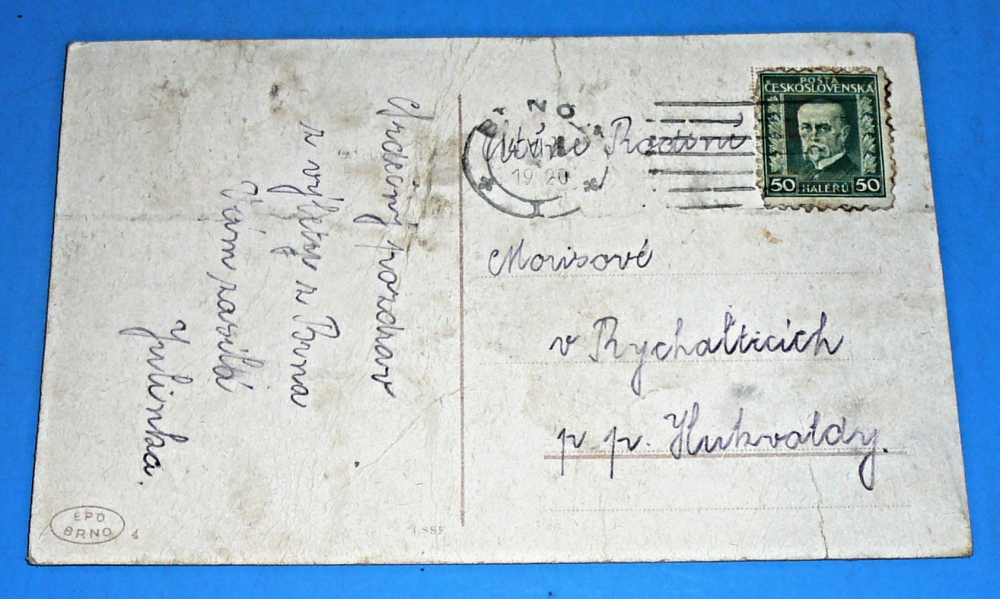 Srdečný pozdrav
z výletu z Brna
Vám zasílá
Julinka.
EPO
BRNO
Ctěné Rodině
Morisové
v Rychalticích
p. p. Hukvaldy.
19 20
POŠTA
ČESKOSLOVENSKÁ
50 HALÉŘŮ 50